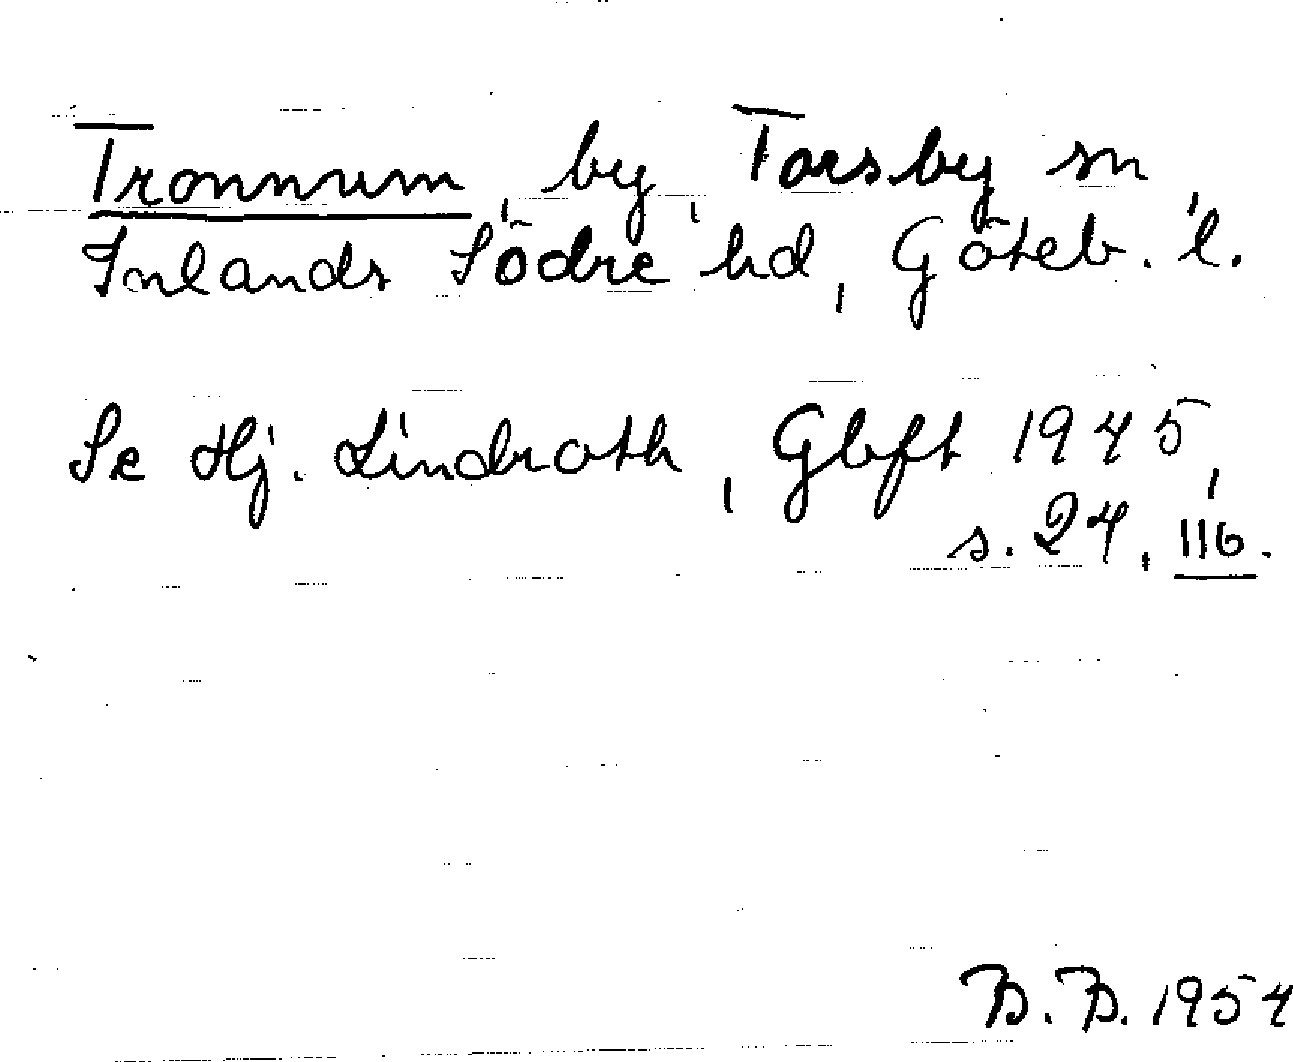 Tronnum, by, Torsby sn,
Inlands Södre hd, Göteb. l.
Se Hj. Lindroth, Gbft 1945,
s. 24, 116.
B. B. 1954